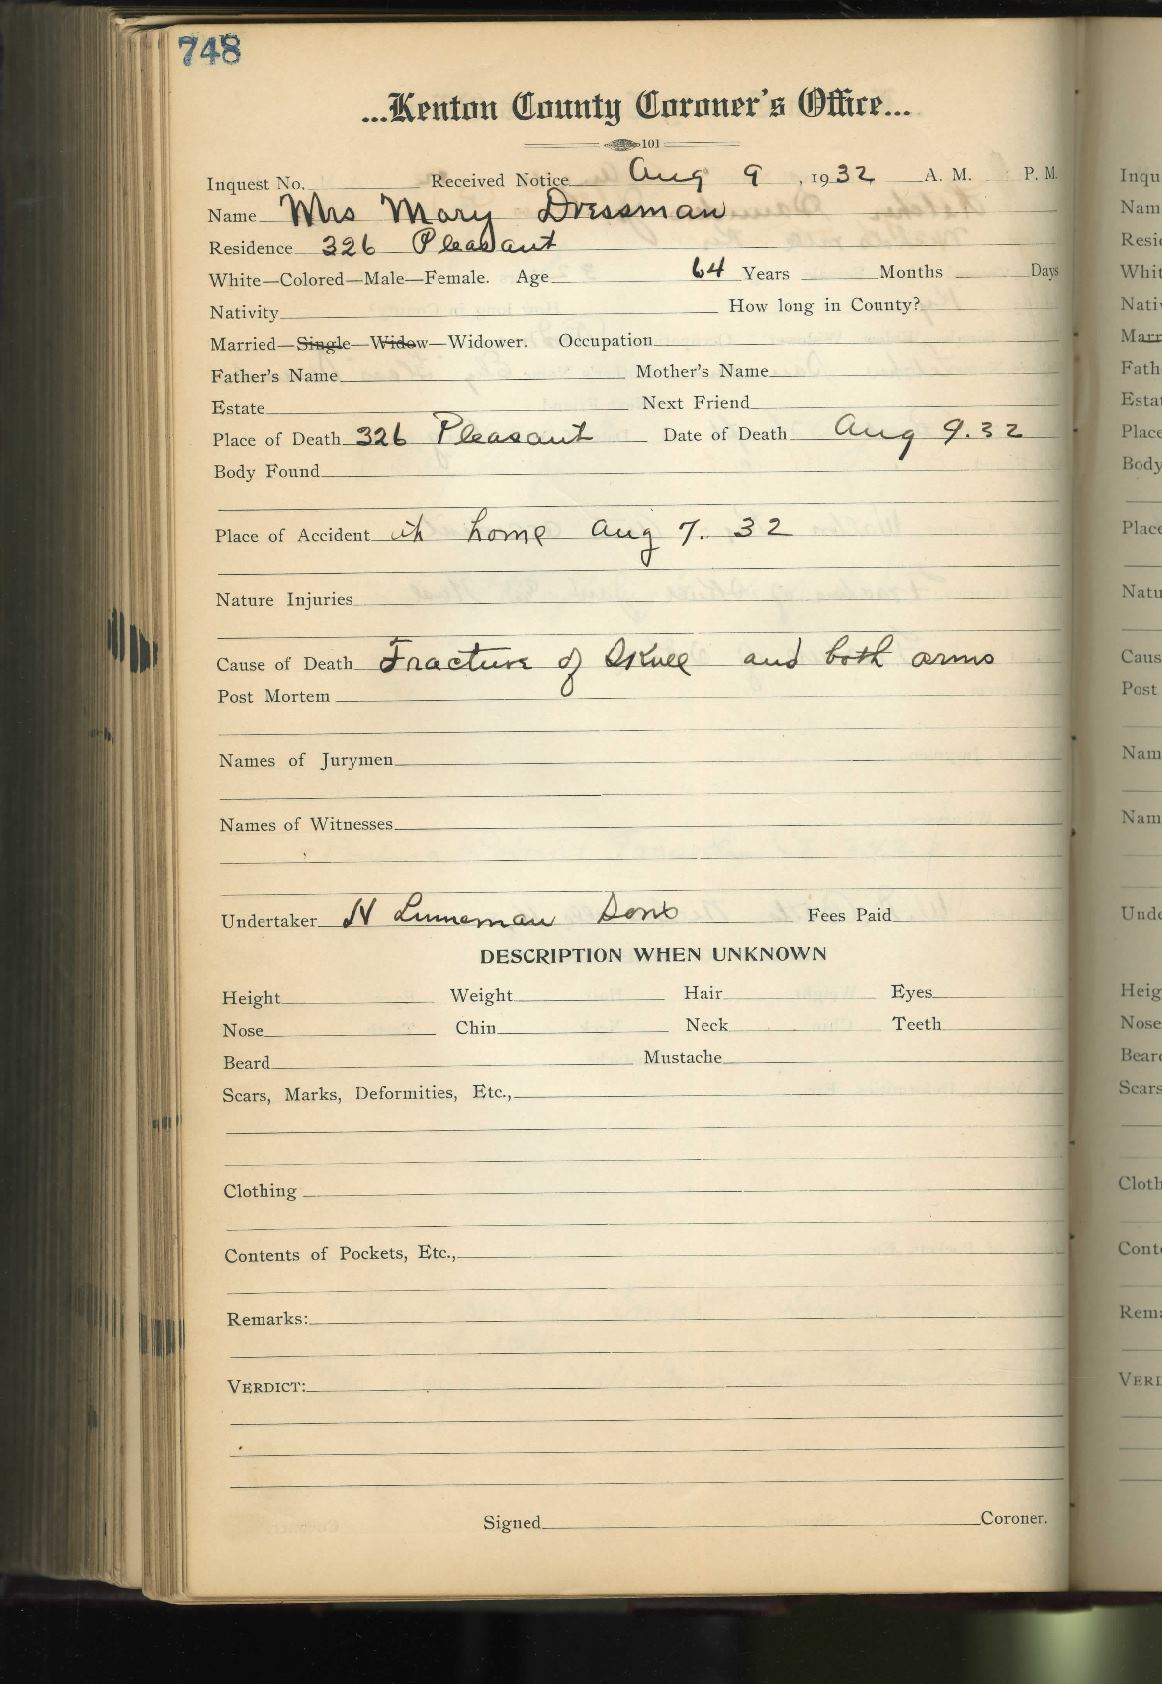 748
...Kenton County Coroner's Office...
101
Inquest No. Received Notice Aug 9, 1932 A. M. P. M.
Name Mrs Mary Dressman
Residence 326 Pleasant
White—Colored—Male—Female. Age 64 Years Months Days
Nativity How long in County?
Married—Single—Widow—Widower. Occupation
Father's Name Mother's Name
Estate Next Friend
Place of Death 326 Pleasant Date of Death Aug 9.32
Body Found
Place of Accident at home Aug 7. 32
Nature Injuries
Cause of Death Fracture of Skull and both arms
Post Mortem
Names of Jurymen
Names of Witnesses
Undertaker H Linneman Sons Fees Paid
DESCRIPTION WHEN UNKNOWN
Height Weight Hair Eyes
Nose Chin Neck Teeth
Beard Mustache
Scars, Marks, Deformities, Etc.,
Clothing
Contents of Pockets, Etc.,
Remarks:
VERDICT:
Signed Coroner.
Inqu
Nam
Resid
Whit
Nativ
Marr
Fath
Estat
Place
Body
Place
Natu
Caus
Post
Nam
Nam
Unde
Heig
Nose
Beard
Scars
Cloth
Conte
Rema
VERD